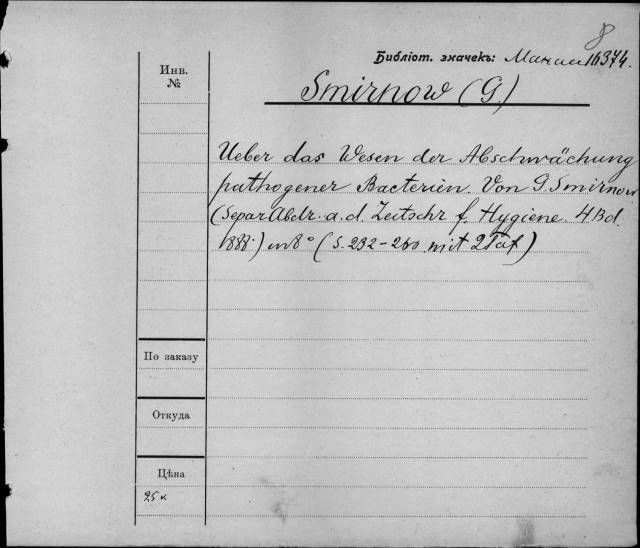 8
Библіот. значекъ: 16374.
Инв.
№
Smirnow (G.)
Ueber das Wesen der Abschwächung
pathogener Bacterien. Von G. Smirnow
(Separ Abdr. a. d. Zeitschr f. Hygiene. 4 Bd.
1888.) in 8° (S. 232-260 mit 2 Taf)
По заказу
Откуда
Цѣна
25 к